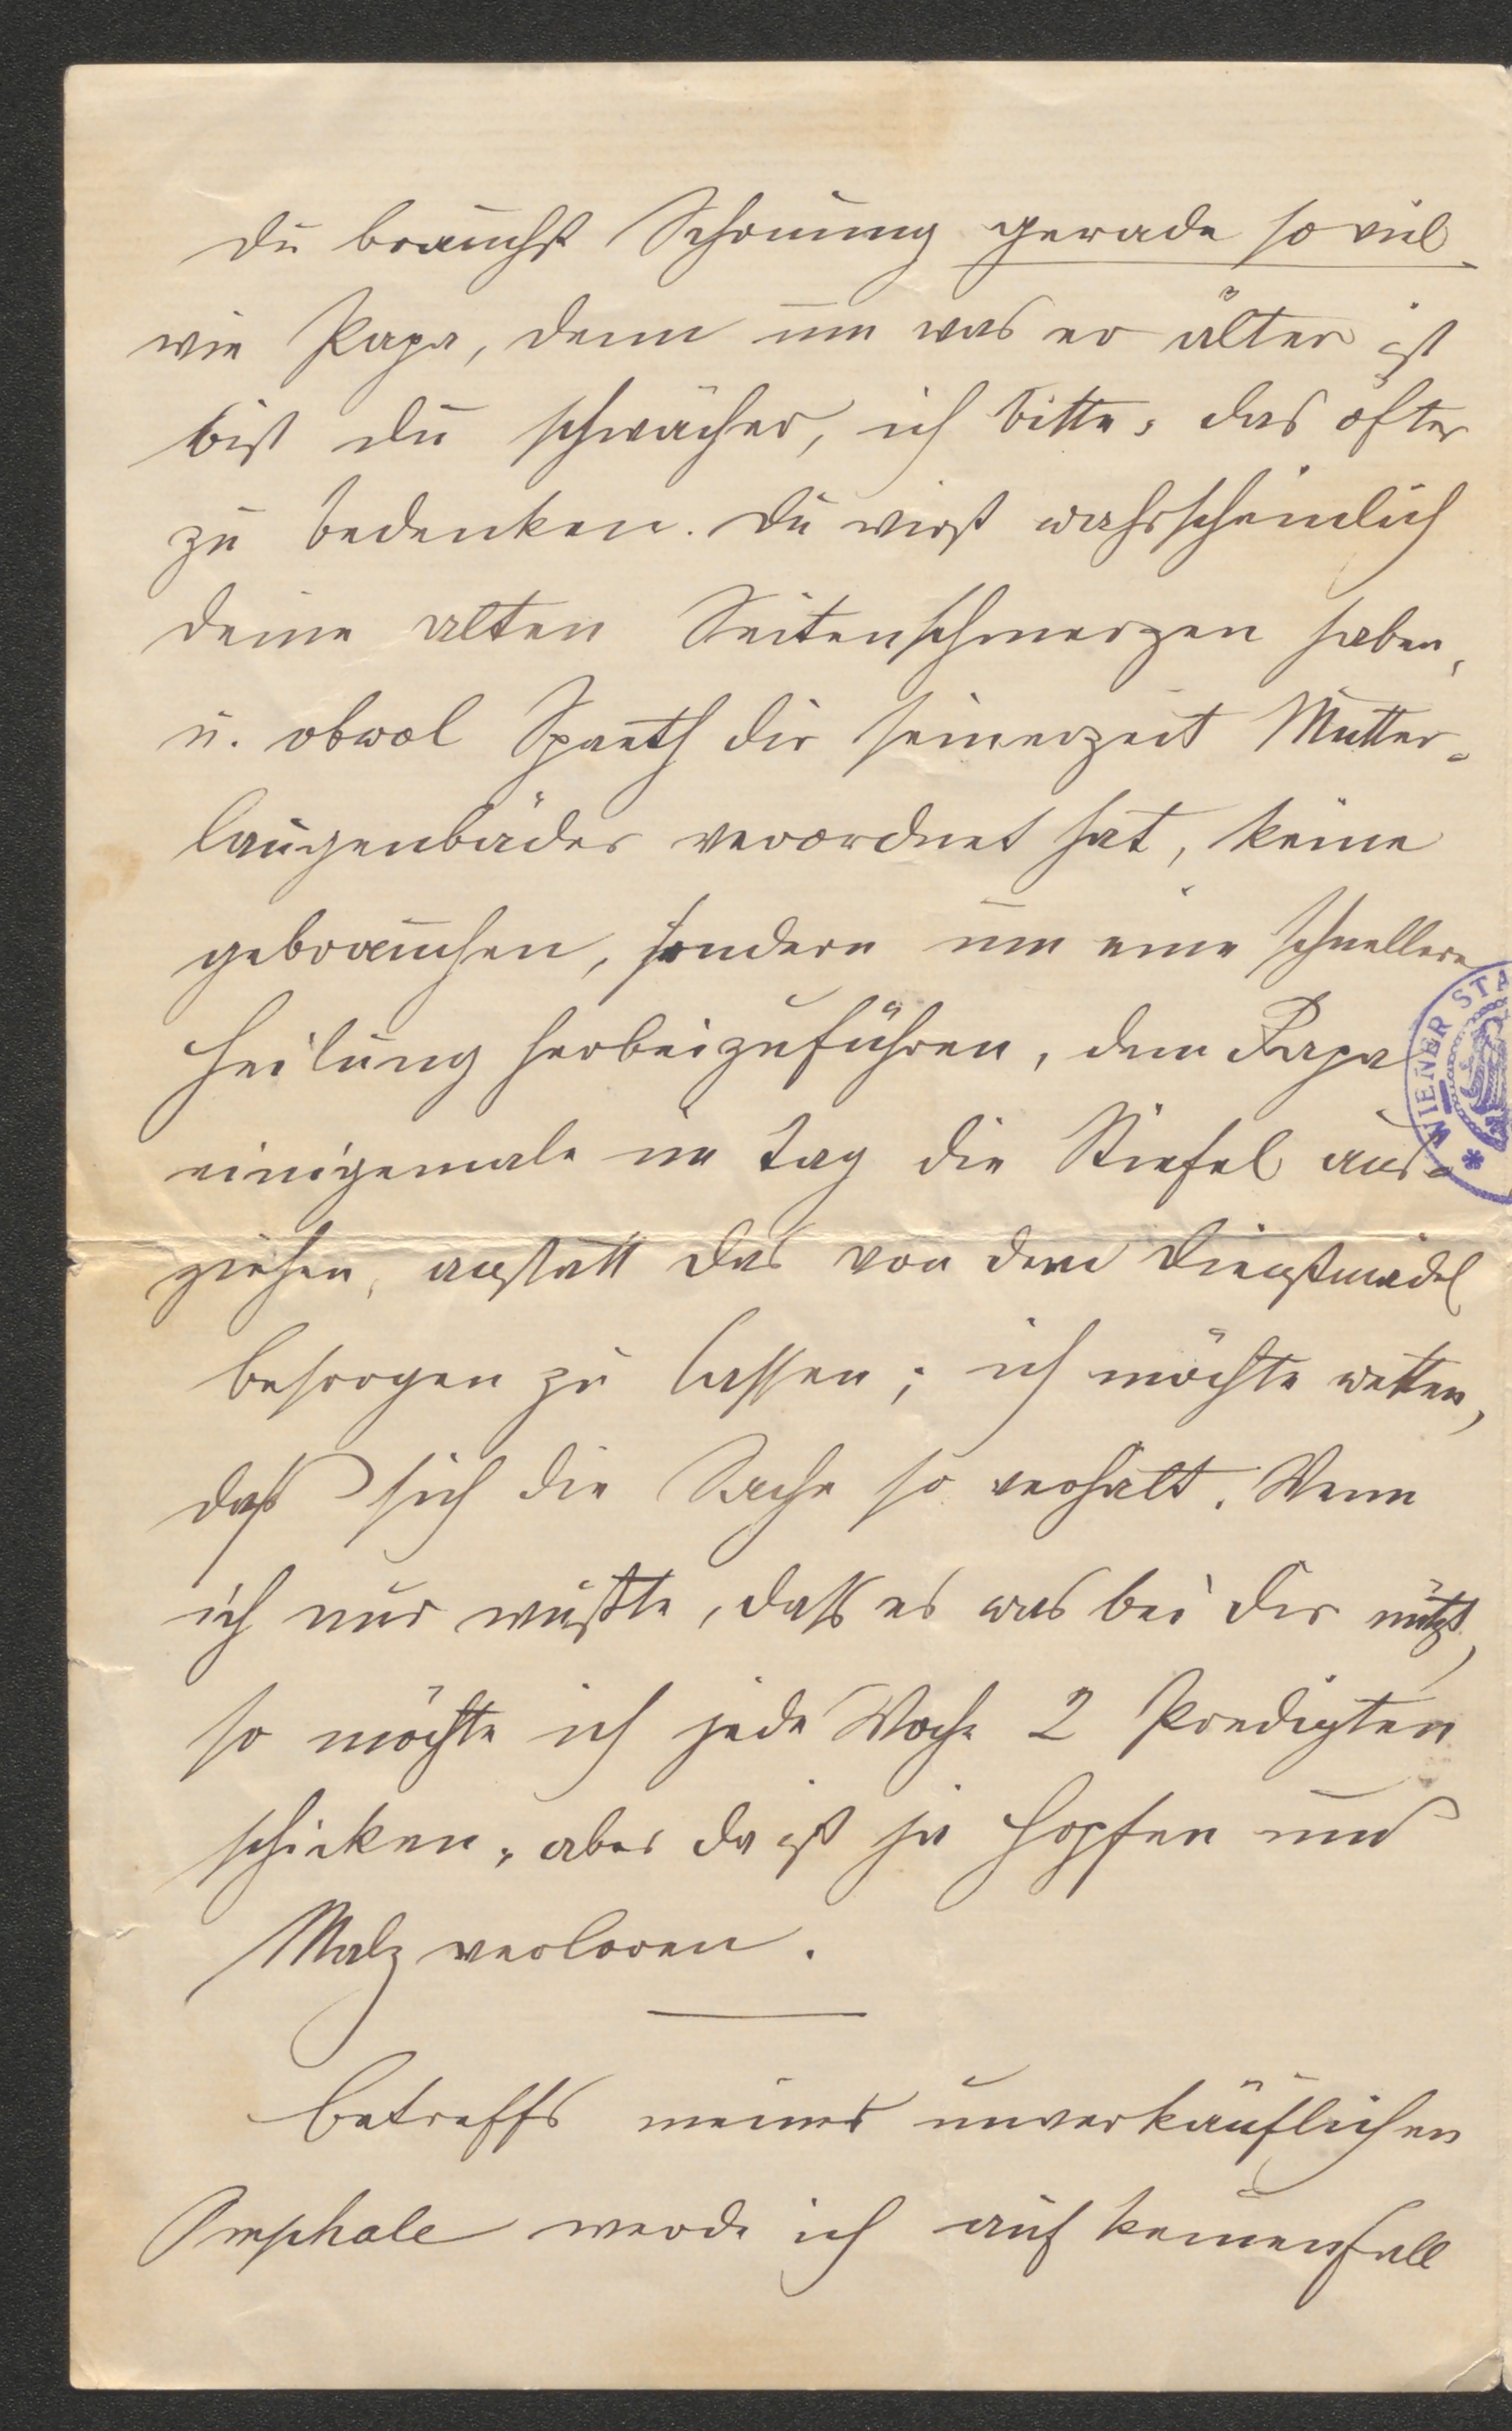 du brauchst Schonung gerade so viel
wie Papa, denn um was er älter ist
bist du schwächer, ich bitte, das öfter
zu bedenken. Du wirst wahrscheinlich
deine alten Seitenschmerzen haben,
u. obwol Spaeth dir seinerzeit Mutter-
laugenbäder verordnet hat, keine
gebrauchen, sondern um eine schnellere
Heilung herbeizuführen, dem Papa
einigemale im Tag die Stiefel aus-
ziehen, anstatt das von dem Dienstmädel
besorgen zu lassen; ich möchte wetten,
daß sich die Sache so verhält. Wenn
ich nur wüßte, dass es was bei dir nützt,
so möchte ich jede Woche 2 Predigten
schicken, aber da ist ja Hopfen und
Malz verloren.
Betreffs meiner unverkäuflichen
Omphale werde ich auf keinenfall
WIENER STA